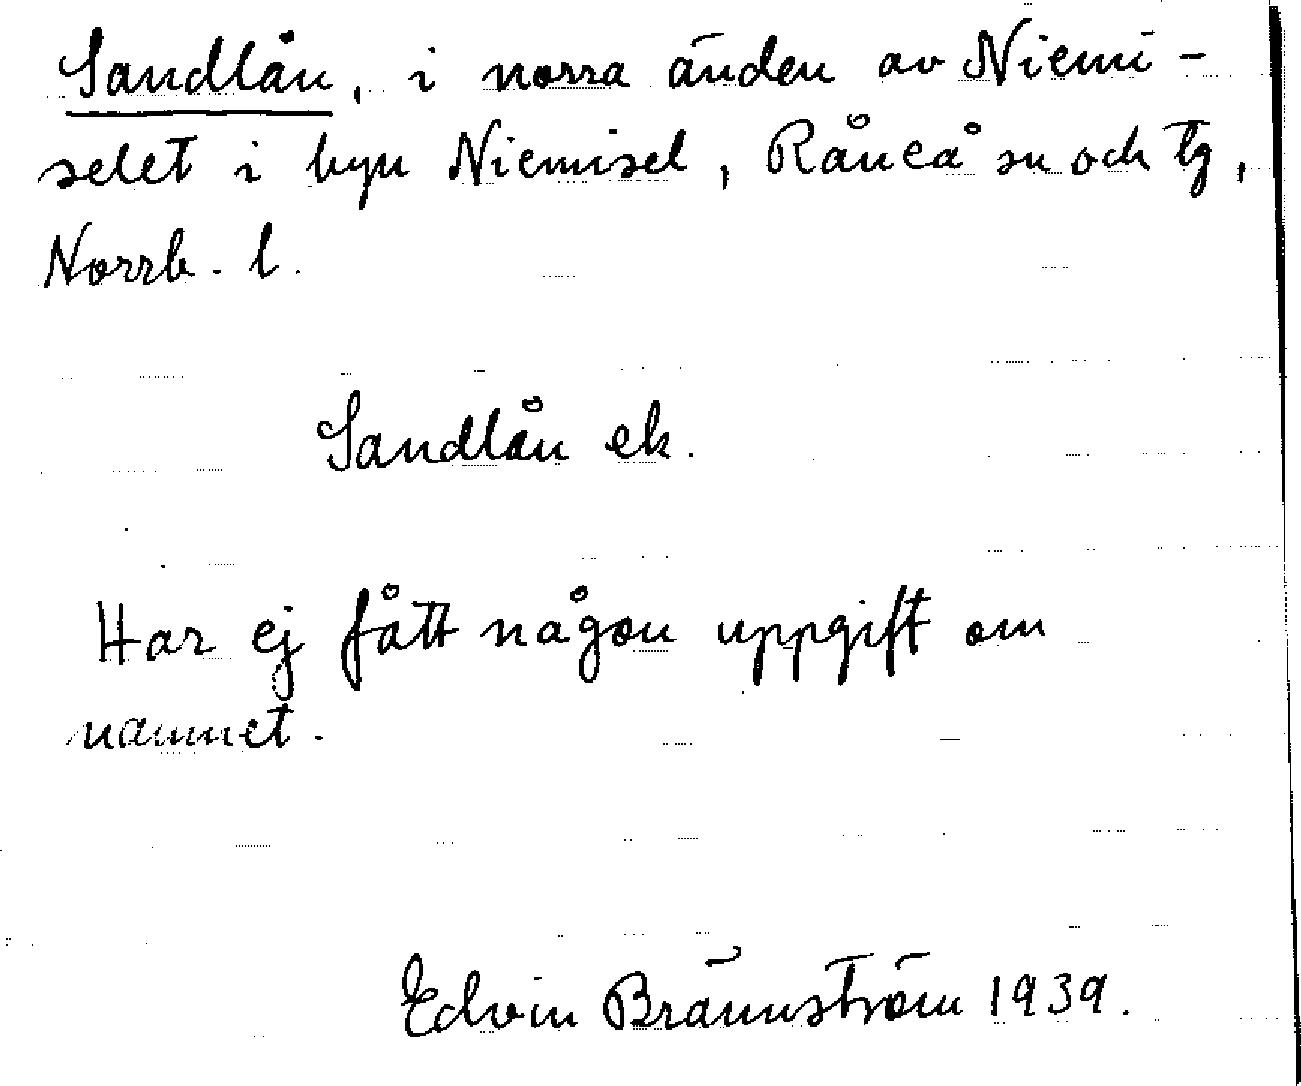 Sandlån, i norra änden av Niemi-
selet i byn Niemisel, Råneå sn och tg,
Norrb. l.
Sandlån ek.
Har ej fått någon uppgift om
namnet.
Edvin Brännström 1939.